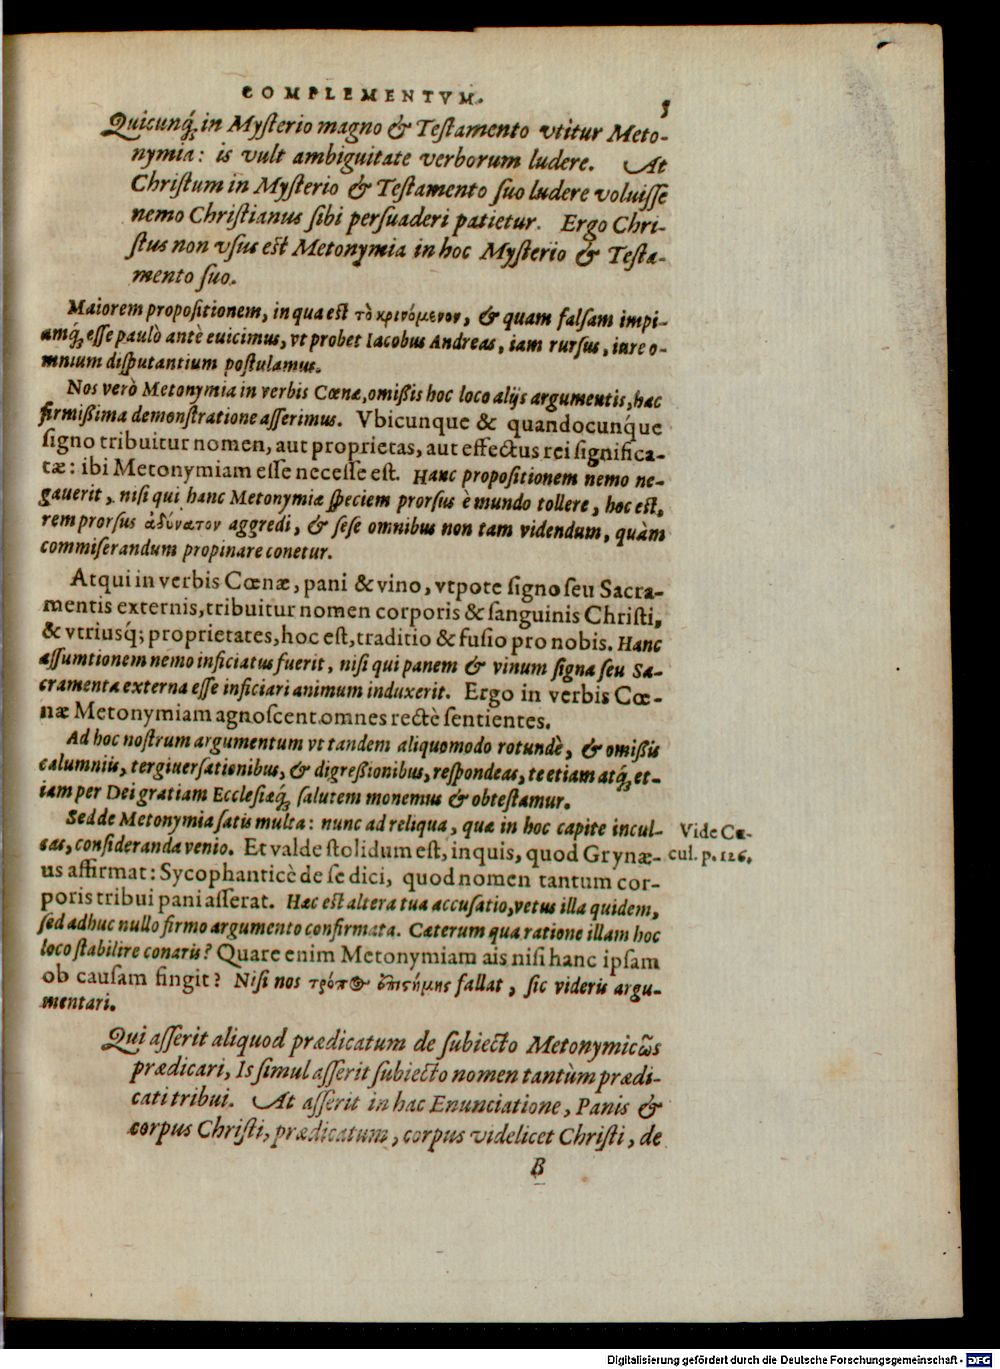 COMPLEMENTVM.
5
Quicunq́ꝫ in Myſterio magno & Teſtamento vtitur Meto-
nymia: is vult ambiguitate verborum ludere. At
Chriſtum in Myſterio & Teſtamento ſuo ludere voluiſſe
nemo Chriſtianus ſibi perſuaderi patietur. Ergo Chri-
ſtus non vſus eſt Metonymia in hoc Myſterio & Teſta-
mento ſuo.
Maiorem propoſitionem, in qua eſt τὸ κρινόμενον, & quam falſam impi-
amq́ꝫ eſſe paulò antè euicimus, vt probet Iacobus Andreas, iam rurſus, iure o-
mnium diſputantium poſtulamus.
Nos verò Metonymia in verbis Cœnæ, omißis hoc loco alijs argumentis, hac
firmißima demonſtratione aſſerimus. Vbicunque & quandocunq́ue
ſigno tribuitur nomen, aut proprietas, aut effectus rei ſignifica-
tæ: ibi Metonymiam eſſe neceſſe eſt. Hanc propoſitionem nemo ne-
gauerit, niſi qui hanc Metonymiæ ſpeciem prorſus è mundo tollere, hoc eſt,
rem prorſus ἀδύνατον aggredi, & ſeſe omnibus non tam videndum, quàm
commiſerandum propinare conetur.
Atqui in verbis Cœnæ, pani & vino, vtpote ſigno ſeu Sacra-
mentis externis, tribuitur nomen corporis & ſanguinis Chriſti,
& vtriusq́; proprietates, hoc eſt, traditio & fuſio pro nobis. Hanc
aſſumtionem nemo inficiatus fuerit, niſi qui panem & vinum ſigna ſeu Sa-
cramenta externa eſſe inficiari animum induxerit. Ergo in verbis Cœ-
næ Metonymiam agnoſcent omnes rectè ſentientes.
Ad hoc noſtrum argumentum vt tandem aliquomodo rotundè, & omißis
calumniis, tergiuerſationibus, & digreßionibus, reſpondeas, te etiam atq́ꝫ et-
iam per Dei gratiam Eccleſiæq́ꝫ ſalutem monemus & obteſtamur.
Sed de Metonymia ſatis multa: nunc ad reliqua, quæ in hoc capite incul-
cas, conſideranda venio. Et valde ſtolidum eſt, inquis, quod Grynæ-
us affirmat: Sycophanticè de ſe dici, quod nomen tantum cor-
poris tribui pani aſſerat. Hæc eſt altera tua accuſatio, vetus illa quidem,
ſed adhuc nullo firmo argumento confirmata. Cæterum qua ratione illam hoc
loco ſtabilire conaris? Quare enim Metonymiam ais niſi hanc ipſam
ob cauſam fingit? Niſi nos τρόπος ἐπιστήμης fallat, ſic videris argu-
mentari.
Vide Ca-
cul. p. 126.
Qui aſſerit aliquod prædicatum de ſubiecto Metonymicῶs
prædicari, Is ſimul aſſerit ſubiecto nomen tantùm prædi-
cati tribui. At aſſerit in hac Enunciatione, Panis &
corpus Chriſti, prædicatum, corpus videlicet Chriſti, de
B
Digitalisierung gefördert durch die Deutsche Forschungsgemeinschaft - DFG